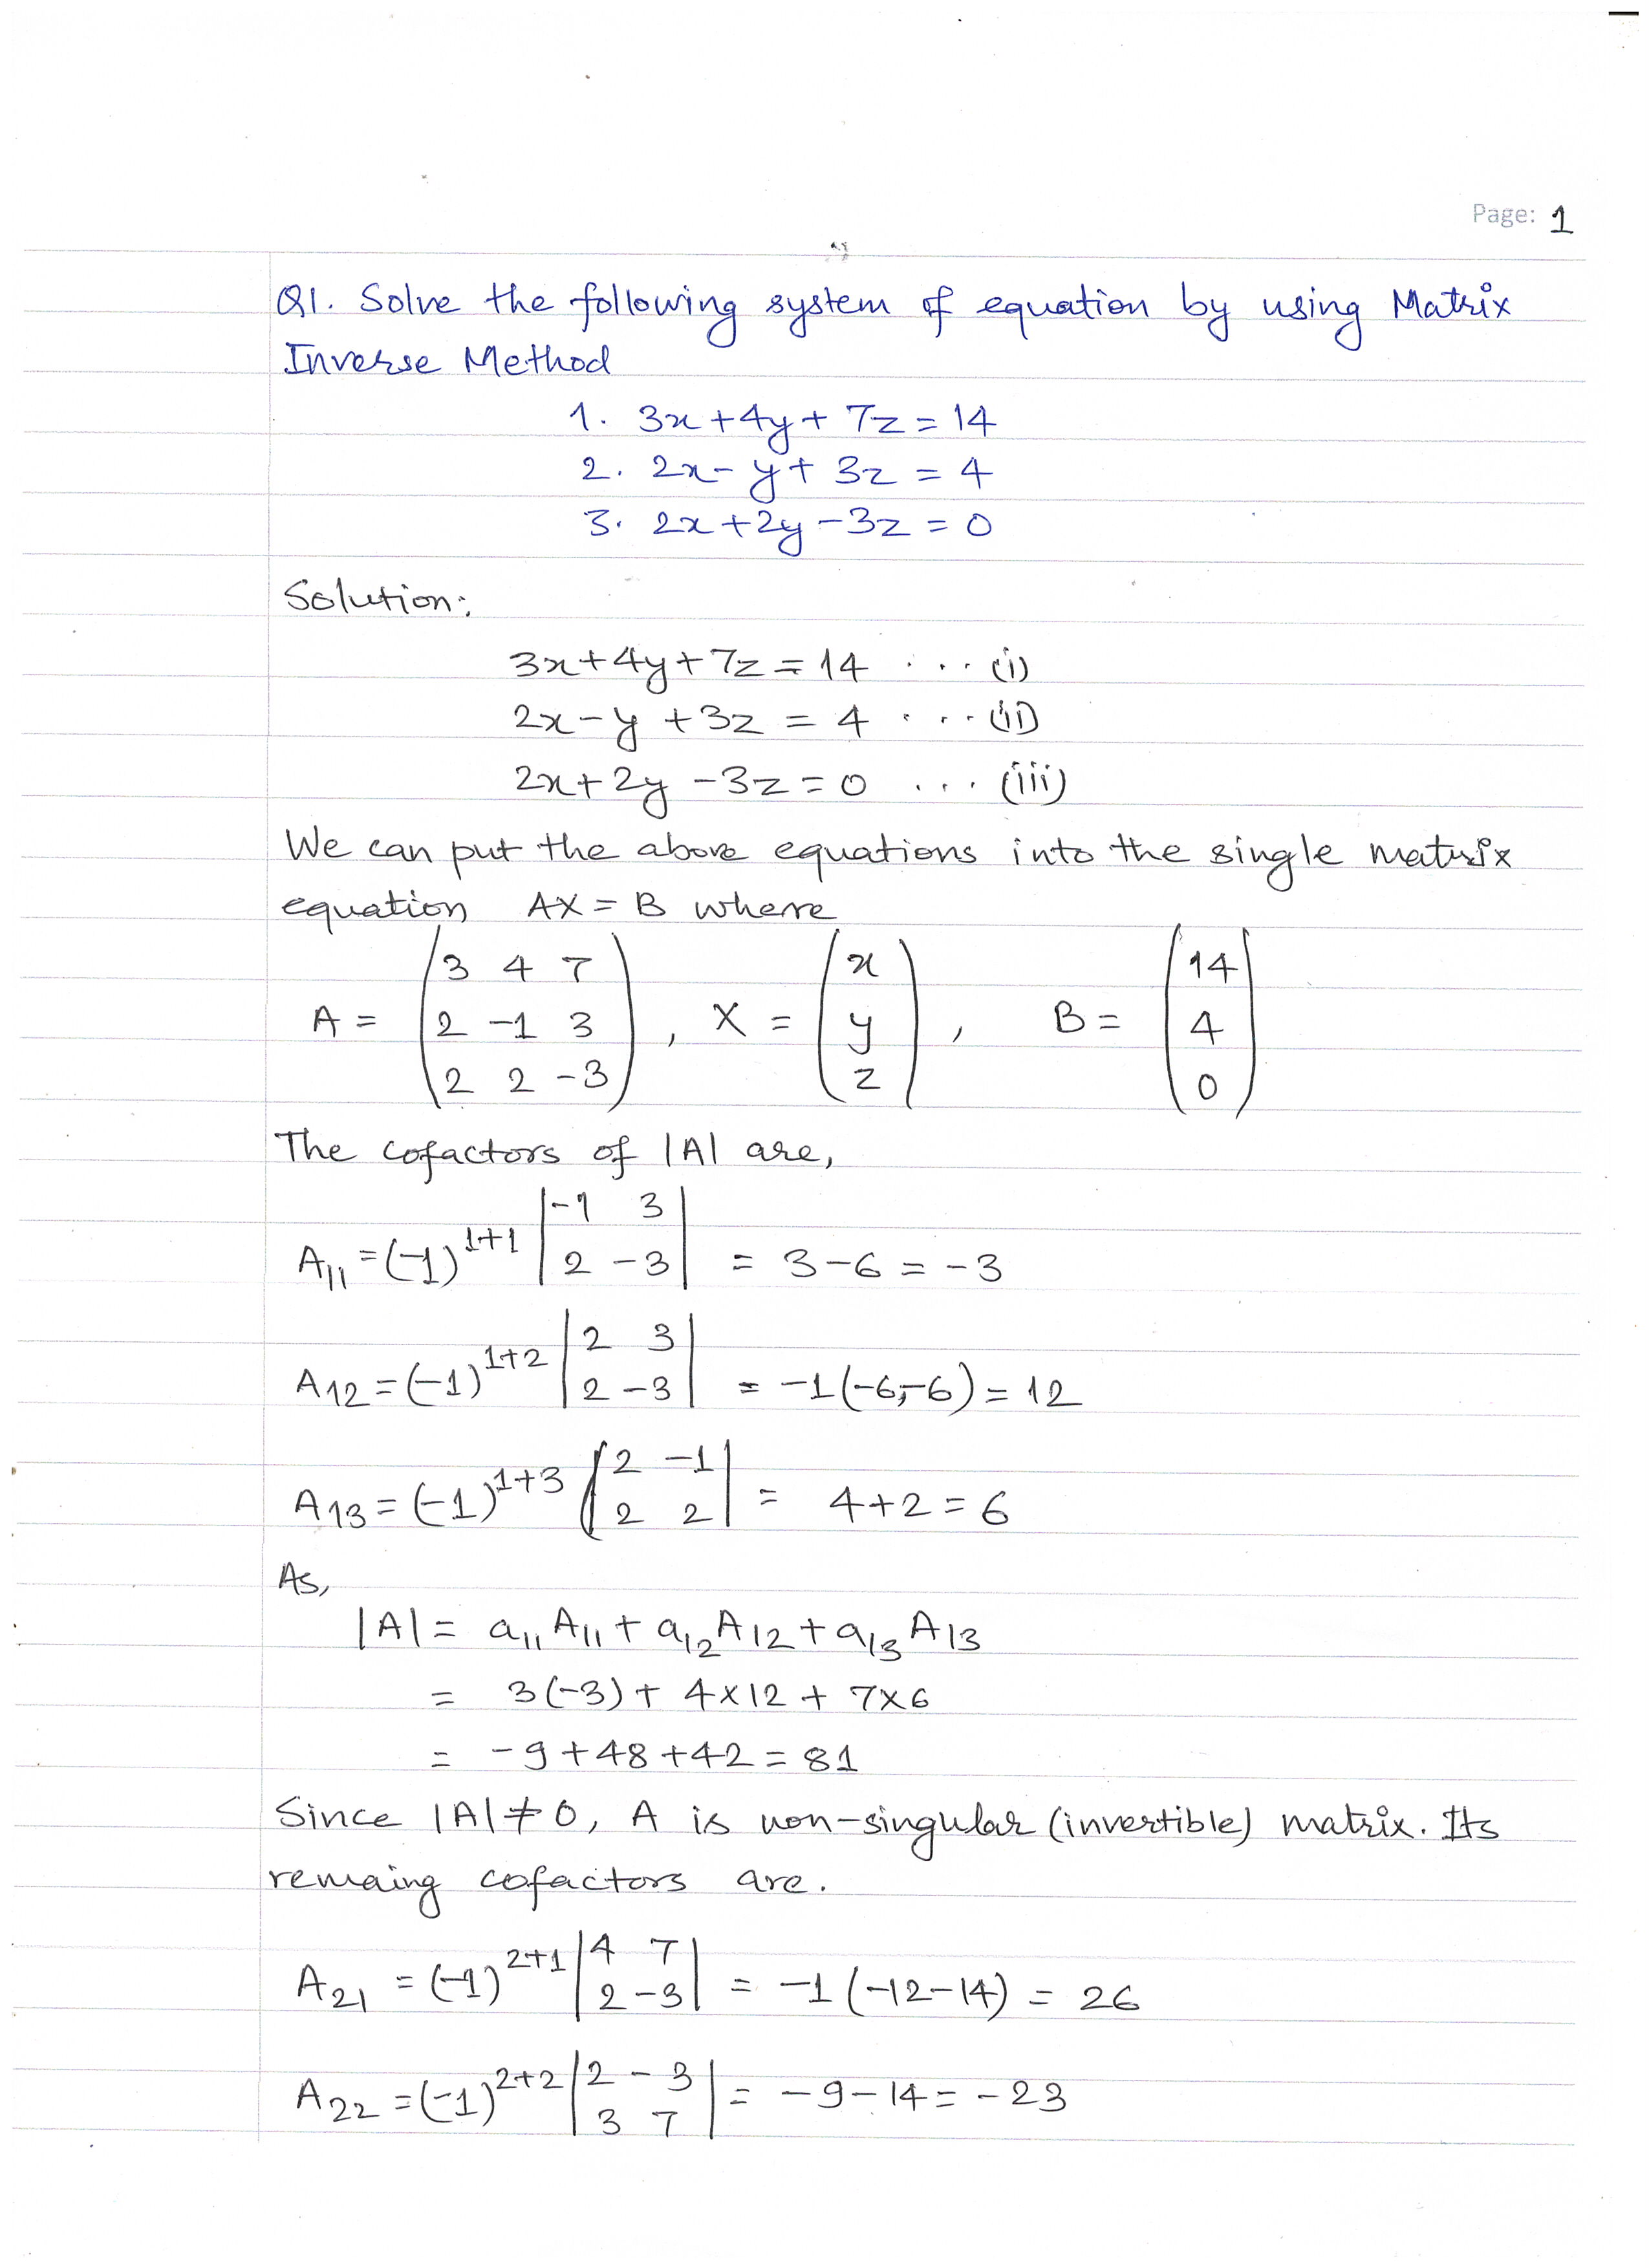 Page: 1
Q1. Solve the following system of equation by using Matrix
Inverse Method
1. 3x+4y+7z=14
2. 2x-y+3z=4
3. 2x+2y-3z=0
Solution:
3x+4y+7z=14 ....(i)
2x-y+3z=4 ....(ii)
2x+2y-3z=0 ...(iii)
We can put the above equations into the single matrix
equation AX=B where
A = (3 4 7; 2 -1 3; 2 2 -3), X = (x; y; z), B = (14; 4; 0)
The cofactors of |A| are,
A₁₁ = (-1)¹⁺¹ |-1 3; 2 -3| = 3-6 = -3
A₁₂ = (-1)¹⁺² |2 3; 2 -3| = -1(-6-6) = 12
A₁₃ = (-1)¹⁺³ |2 -1; 2 2| = 4+2 = 6
As,
|A| = a₁₁A₁₁ + a₁₂A₁₂ + a₁₃A₁₃
= 3(-3) + 4×12 + 7×6
= -9+48+42 = 81
Since |A|≠0, A is non-singular (invertible) matrix. Its
remaing cofactors are.
A₂₁ = (-1)²⁺¹ |4 7; 2 -3| = -1(-12-14) = 26
A₂₂ = (-1)²⁺² |2 -3; 3 7| = -9-14 = -23